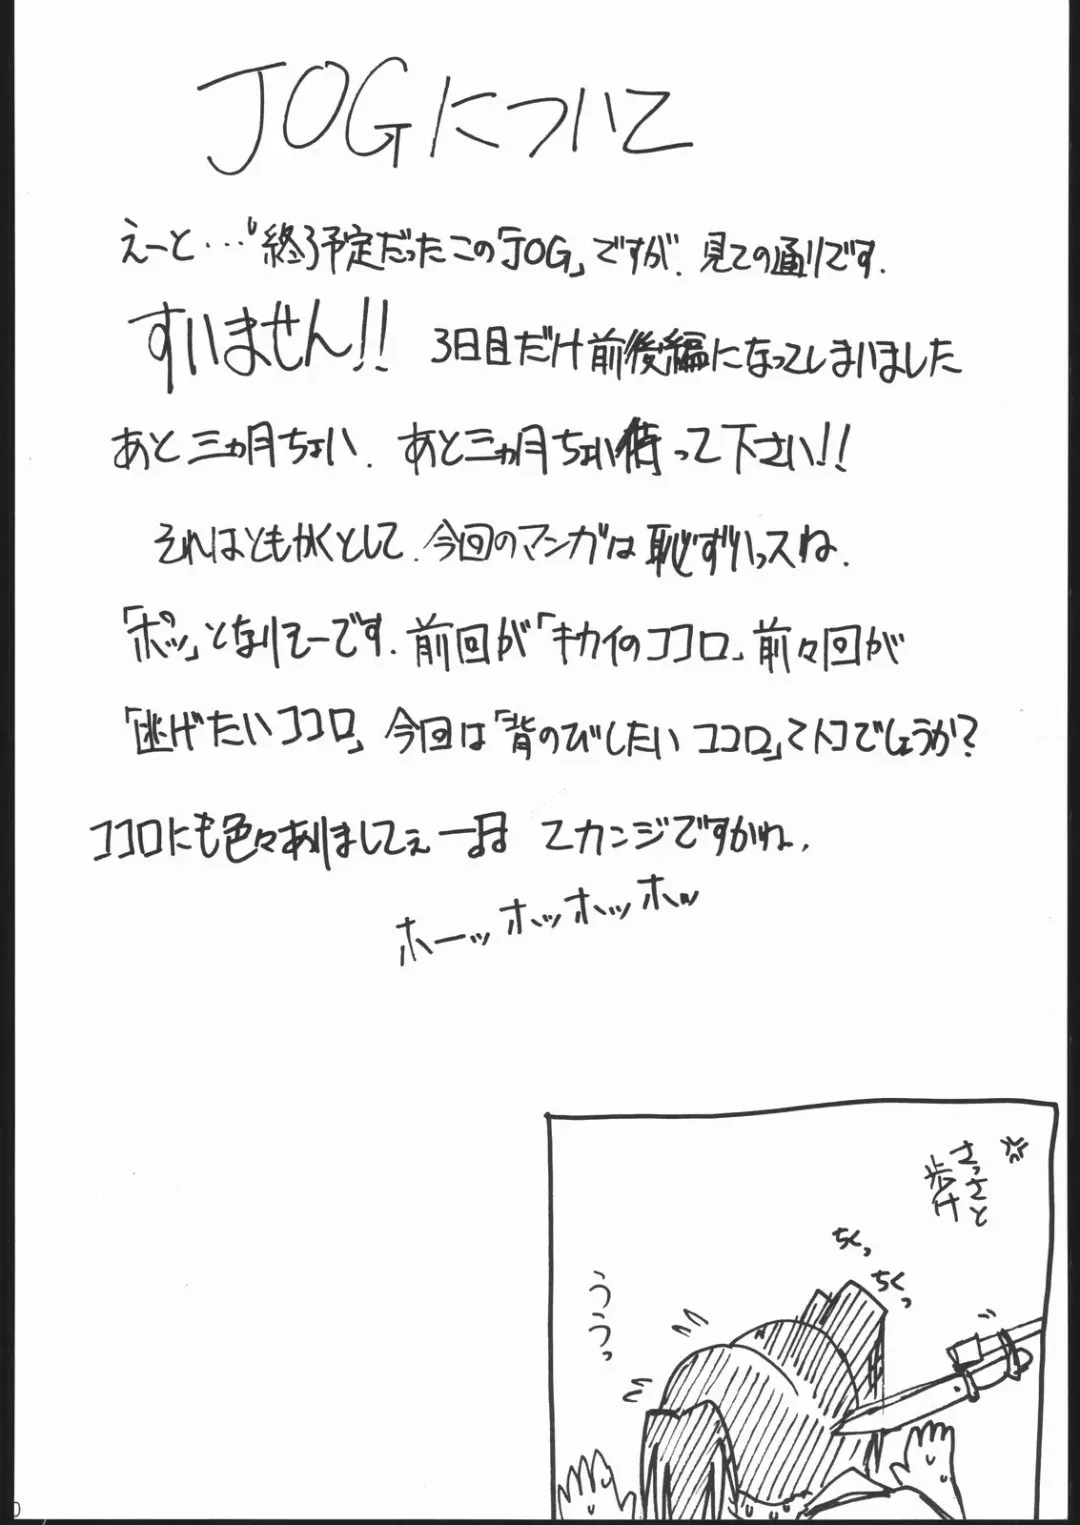 JOGについて
えーと…“終了予定だったこの「JOG」ですが、見ての通りです.
すいません!! 3日目だけ前後編になってしまいました
あと三ヵ月ちょい、あと三ヵ月ちょい待って下さい!!
それはともかくとして、今回のマンガは恥ずいっスね.
「ポッ」となりそーです. 前回が「キカイのココロ」前々回が
「逃げたいココロ」今回は「背のびしたいココロ」てトコでしょうか?
ココロにも色々ありましてぇ てカンジですかね.
ホーッ ホッホッホッ
さっさと
歩け
ちくっ
ちくっ
ううっ